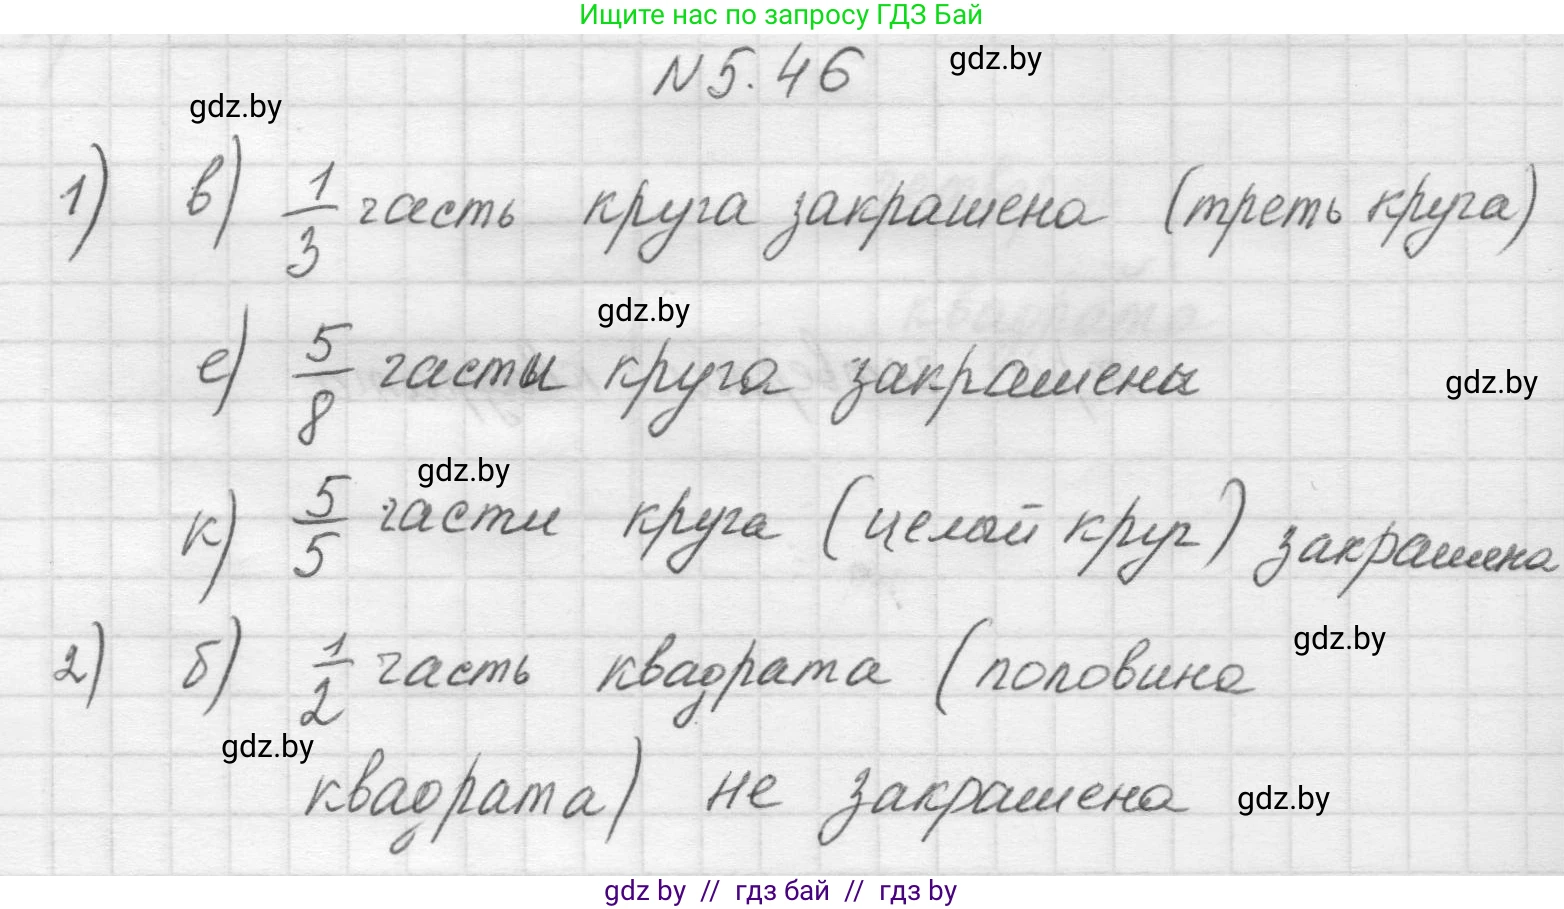 Ищите нас по запросу ГДЗ Бай
N 5.46 gdz.by
gdz.by
1) в) 1/3 часть круга закрашена (треть круга)
gdz.by
е) 5/8 части круга закрашены gdz.by
gdz.by
к) 5/5 части круга (целой круг) закрашена
gdz.by
2) б) 1/2 часть квадрата (половина
gdz.by
квадрата) не закрашена gdz.by
gdz by // гдз бай // гдз by